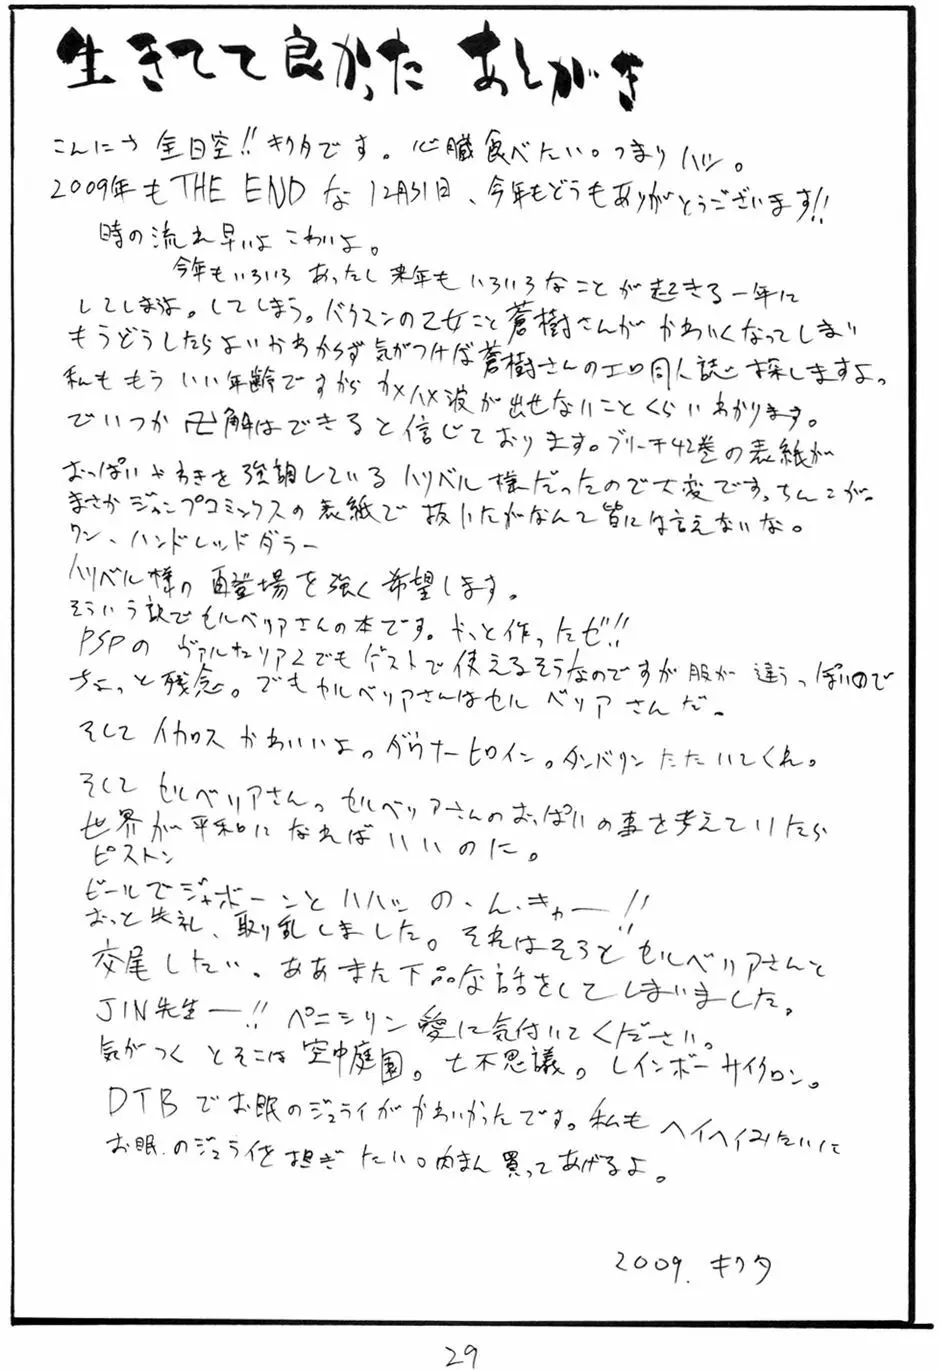 生きてて良かった あとがき
こんにち 全日空!! キクタです。心臓食べたい。つまりハツ。
2009年もTHE ENDな12月31日、今年もどうもありがとうございます!!
時の流れ早いよ こわいよ。
今年もいろいろ あったし 来年も いろいろなことが起きる一年に
してしまおう。してしまう。バクマンの乙女こと蒼樹さんが かわいくなってしまい
もうどうしたらよいかわからず気がつけば蒼樹さんのエロ同人誌 探しますよ。
私ももう いい年齢ですから カメハメ波が出せないことくらいわかります。
でいつか卍解はできると信じております。ブリーチ42巻の表紙が
おっぱいやわきを強調している ハリベル様だったので大変です。ちんこが。
まさかジャンプコミックスの表紙で 抜いたがなんて皆には言えないな。
ワン、ハンドレッドダラー
ハリベル様の 再登場を強く希望します。
そういう訳でセルベリアさんの本です。やっと作ったぜ!!
PSPの ヴァルキュリア2でもゲストで使えるそうなのですが服が 違うっぽいので
ちょっと残念。でもセルベリアさんはセルベリアさんだ。
そして イカロス かわいいよ。ダウナーヒロイン。タンバリン たたいてくれ。
そして セルベリアさん。セルベリアさんのおっぱいの事を考えていたら
世界が平和に なればいいのに。
ピストン
ビールでジャボーンと ハハッ の、ん、きゃー!!
おっと失礼、取り乱しました。それはそうと セルベリアさんと
交尾したい。ああまた下品な話をしてしまいました。
JIN先生ー!! ペニシリン 愛に気付いてください。
気がつくとそこは 空中庭園。七不思議。レインボーサイクロン。
DTBでお眠のジュライがかわいかったです。私も ヘイヘイみたいに
お眠のジュライを 担ぎたい。肉まん買ってあげるよ。
2009. キクタ
29